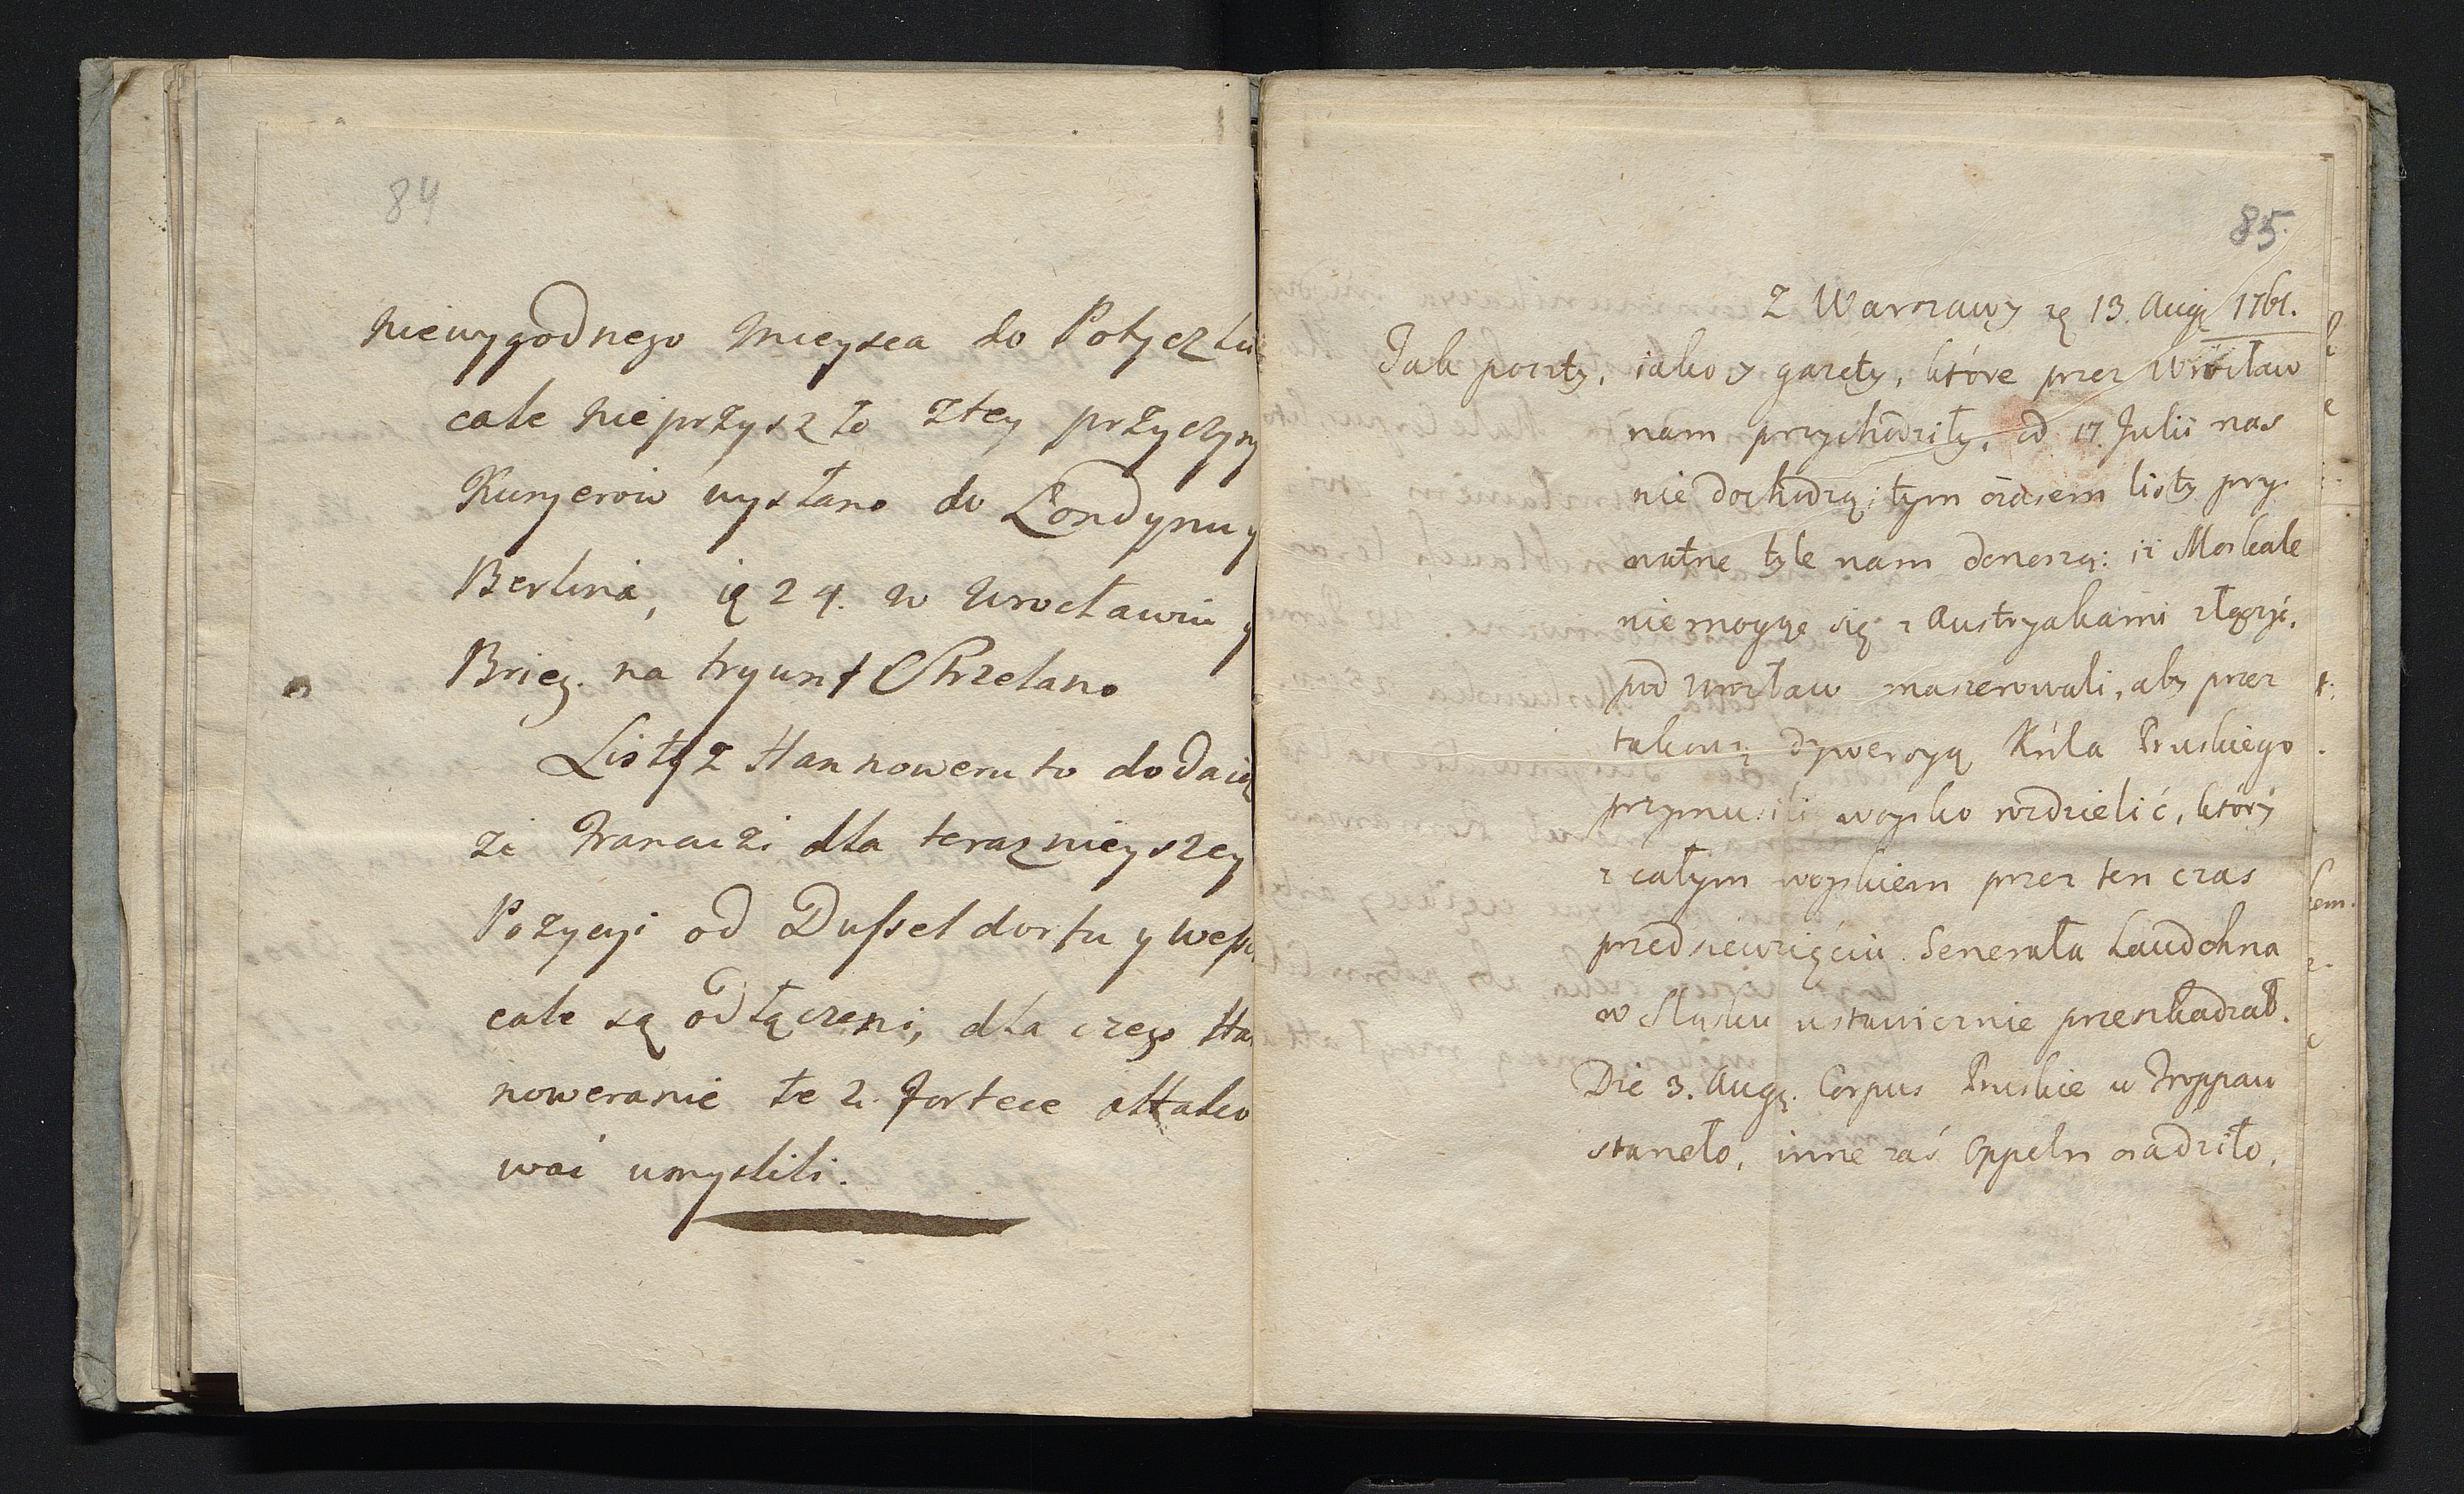 84
niewygodnego mieysca do Potyczki
cale nieprzyszło ztey przyczyny
Kuryerów wysłano do Londynu y
Berlina, ię 24. w Wrocławiu y
Brieg. na tryumf Strzelano
Listy z Hannoweru to dodaią
że Francuzi dla teraznieyszey
Pozycyi od Dusseldorfu y Wess
cale są odłączeni, dla czego Ha
noweranie te 2. fortece attako
wać umyslili.
85.
Z Warszawy 13. Aug 1761.
Jak poczty, iako y gazety, które przez Wrocław
nam przychodziły, od 17. Julii nas
nie dochodzą; tym czasem listy pry-
watne tyle nam donoszą: iż Moskale
niemogąc się z Austryakami złączyć,
pod Wrocław maszerowali, aby przez
takową dywersyą Króla Pruskiego
przymusili woysko rozdzielić, który
z całym woyskiem przez ten czas
przedsiewzięciu Generała Laudohna
w Sląsku ustawicznie przeszkadzał.
Die 3. Aug. Corpus Pruskie w Troppau
staneło, inne zaś Oppeln osadziło,